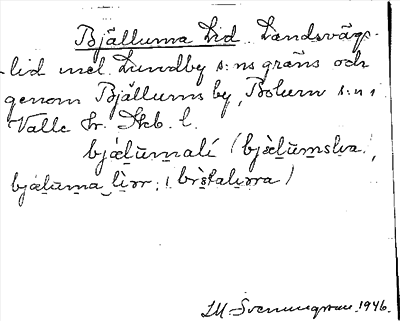 Bjälluma Lid. Landsvägs-
lid mel. Lundby s:ns gräns och
genom Bjällums by, Bolum s:n i
Valle hr. Skb. l.
bjælūmalí (bjælūmslıa,
bjælūma
JM Svenningsson 1946.